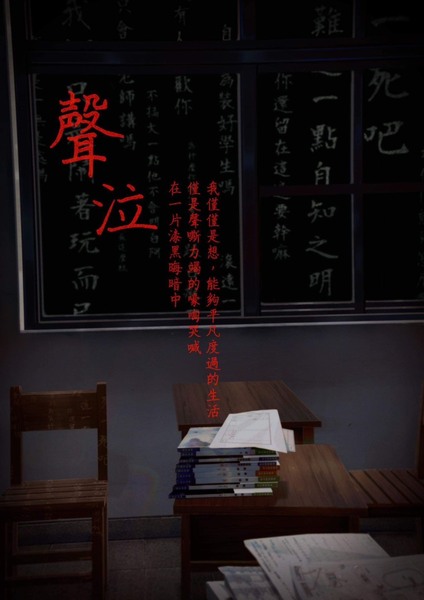 聲泣
我僅僅是想，能夠平凡度過的生活
僅是聲嘶力竭的嚎啕哭喊
在一片漆黑晦暗中
死吧
難 一點自知之明
你還留在這 要幹嘛
滾遠一
自 為裝好學生嗎
有 歡你
一點他不會明白阿
只會 老師講嗎
我 鬧著玩而已